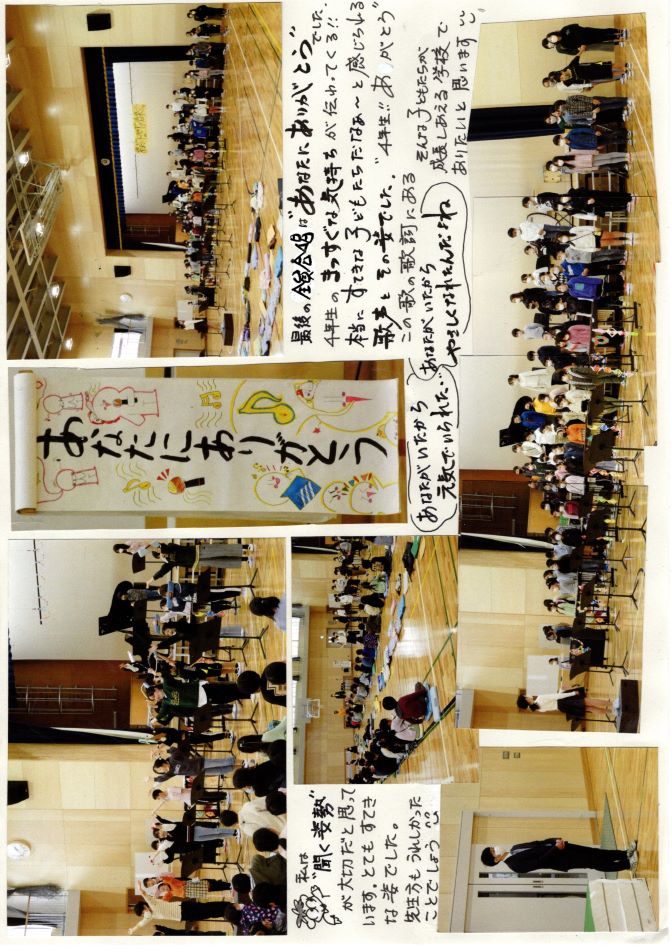 最後の全員合唱は"あなたにありがとう"でした。
4年生のまっすぐな気持ちが伝わってくる!!
本当にすてきな子どもたちだなぁ〜と感じられる
歌声とその姿でした。"4年生!!ありがとう"
この歌の歌詞にある
あなたがいたから
やさしくなれたんだよね
あなたがいたから
元気でいられた…
そんな子どもたちが
成長しあえる学校で
ありたいと思います
あなたにありがとう
私は
"聞く姿勢"
が大切だと思って
います。とてもすてき
な姿でした。
先生方もうれしかった
ことでしょう